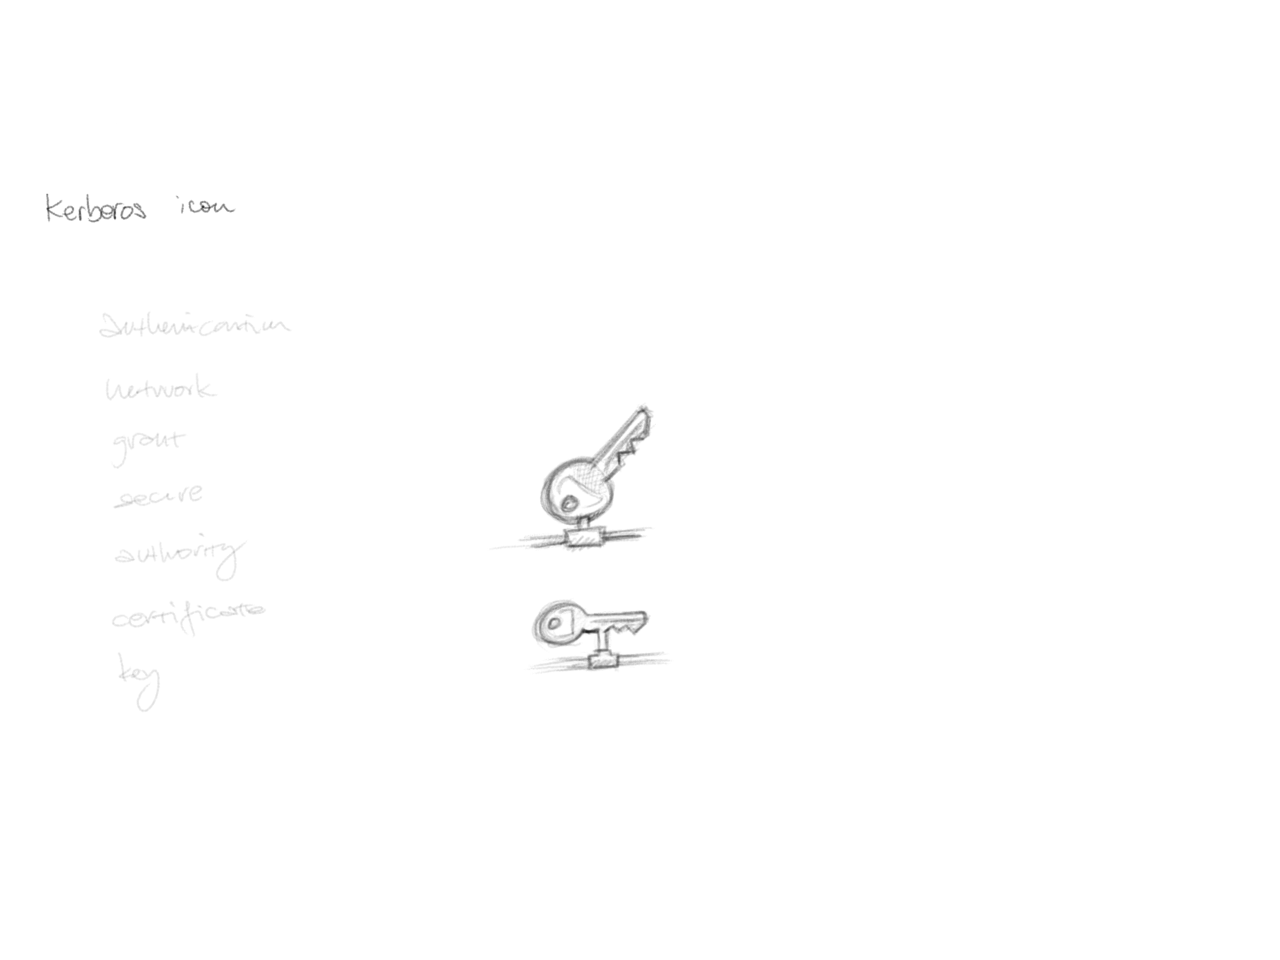 Kerberos icon
authenication
network
grant
secure
authority
certificate
key